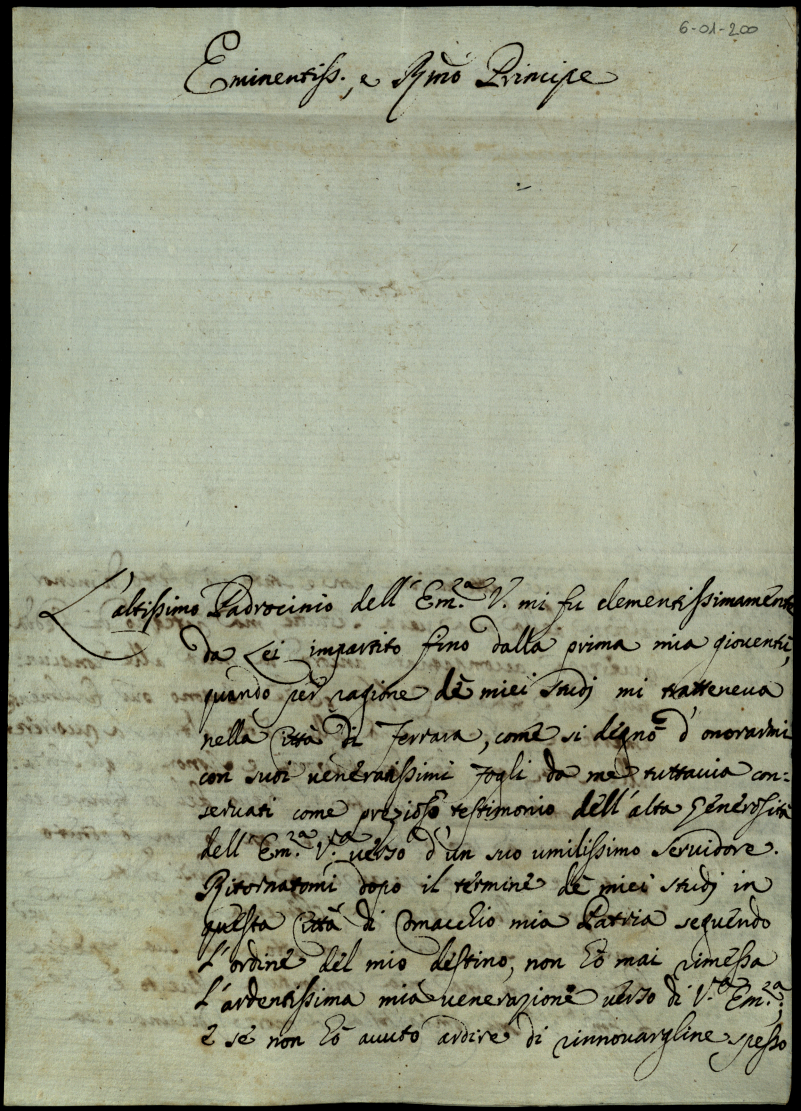 6-01-200
Eminentiss., e Rṁo Principe
L'altissimo Padrocinio dell' Em.za V. mi fu clementissimamente
da Lei impartito fino dalla prima mia gioventù,
quando per ragione de miei studj mi tratteneva
nella Città di Ferrara, come si degnò d'onorarmi
con suoi veneratissimi fogli da me tuttavia con=
servati come prezioso testimonio dell'alta generosità
dell' Em.za V.ra verso d'un suo umilissimo servidore.
Ritornatomi dopo il termine de miei studj in
questa Città di Comacchio mia Patria seguendo
l'ordine del mio destino, non hò mai rimessa
l'ardentissima mia venerazione verso di V.ra Em.za,
e se non hò avuto ardire di rinnovargline spesso